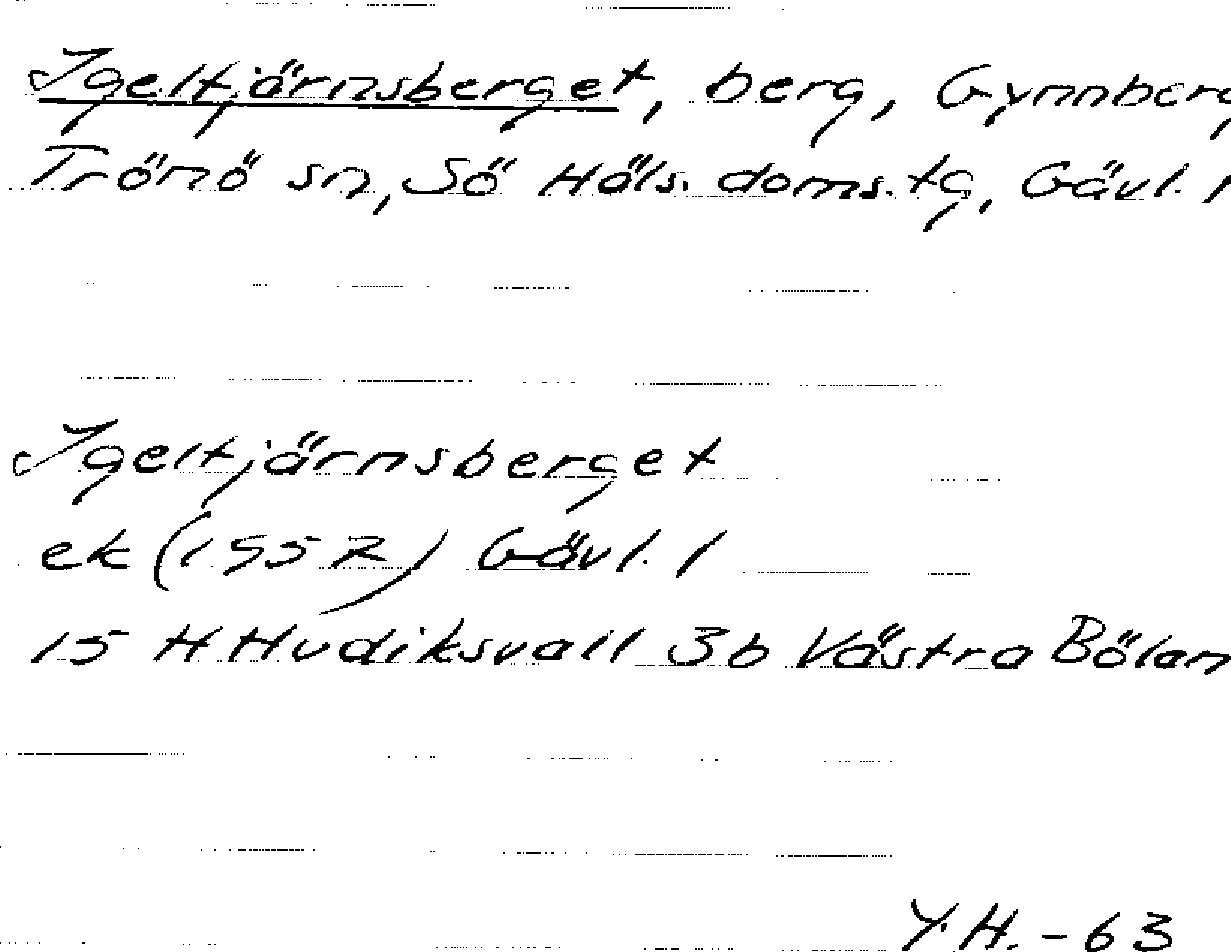 Igeltjärnsberget, berg, Gynnberg
Trönö sn, Sö Häls. doms.tg, Gävl. l
Igeltjärnsberget
ek (1957) Gävl. l
15 H Hudiksvall 3b Västra Bölan
Y.H. -63